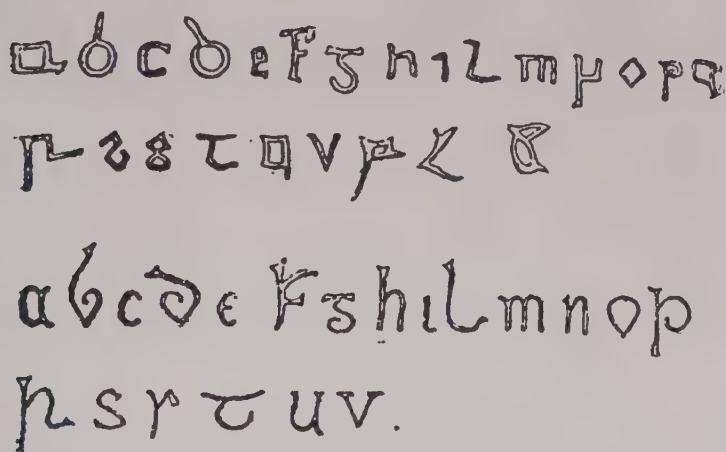 a b c d e F g h ı l m n o p q
r s t v
a b c d e F g h ı l m n o p
r s r t u v.